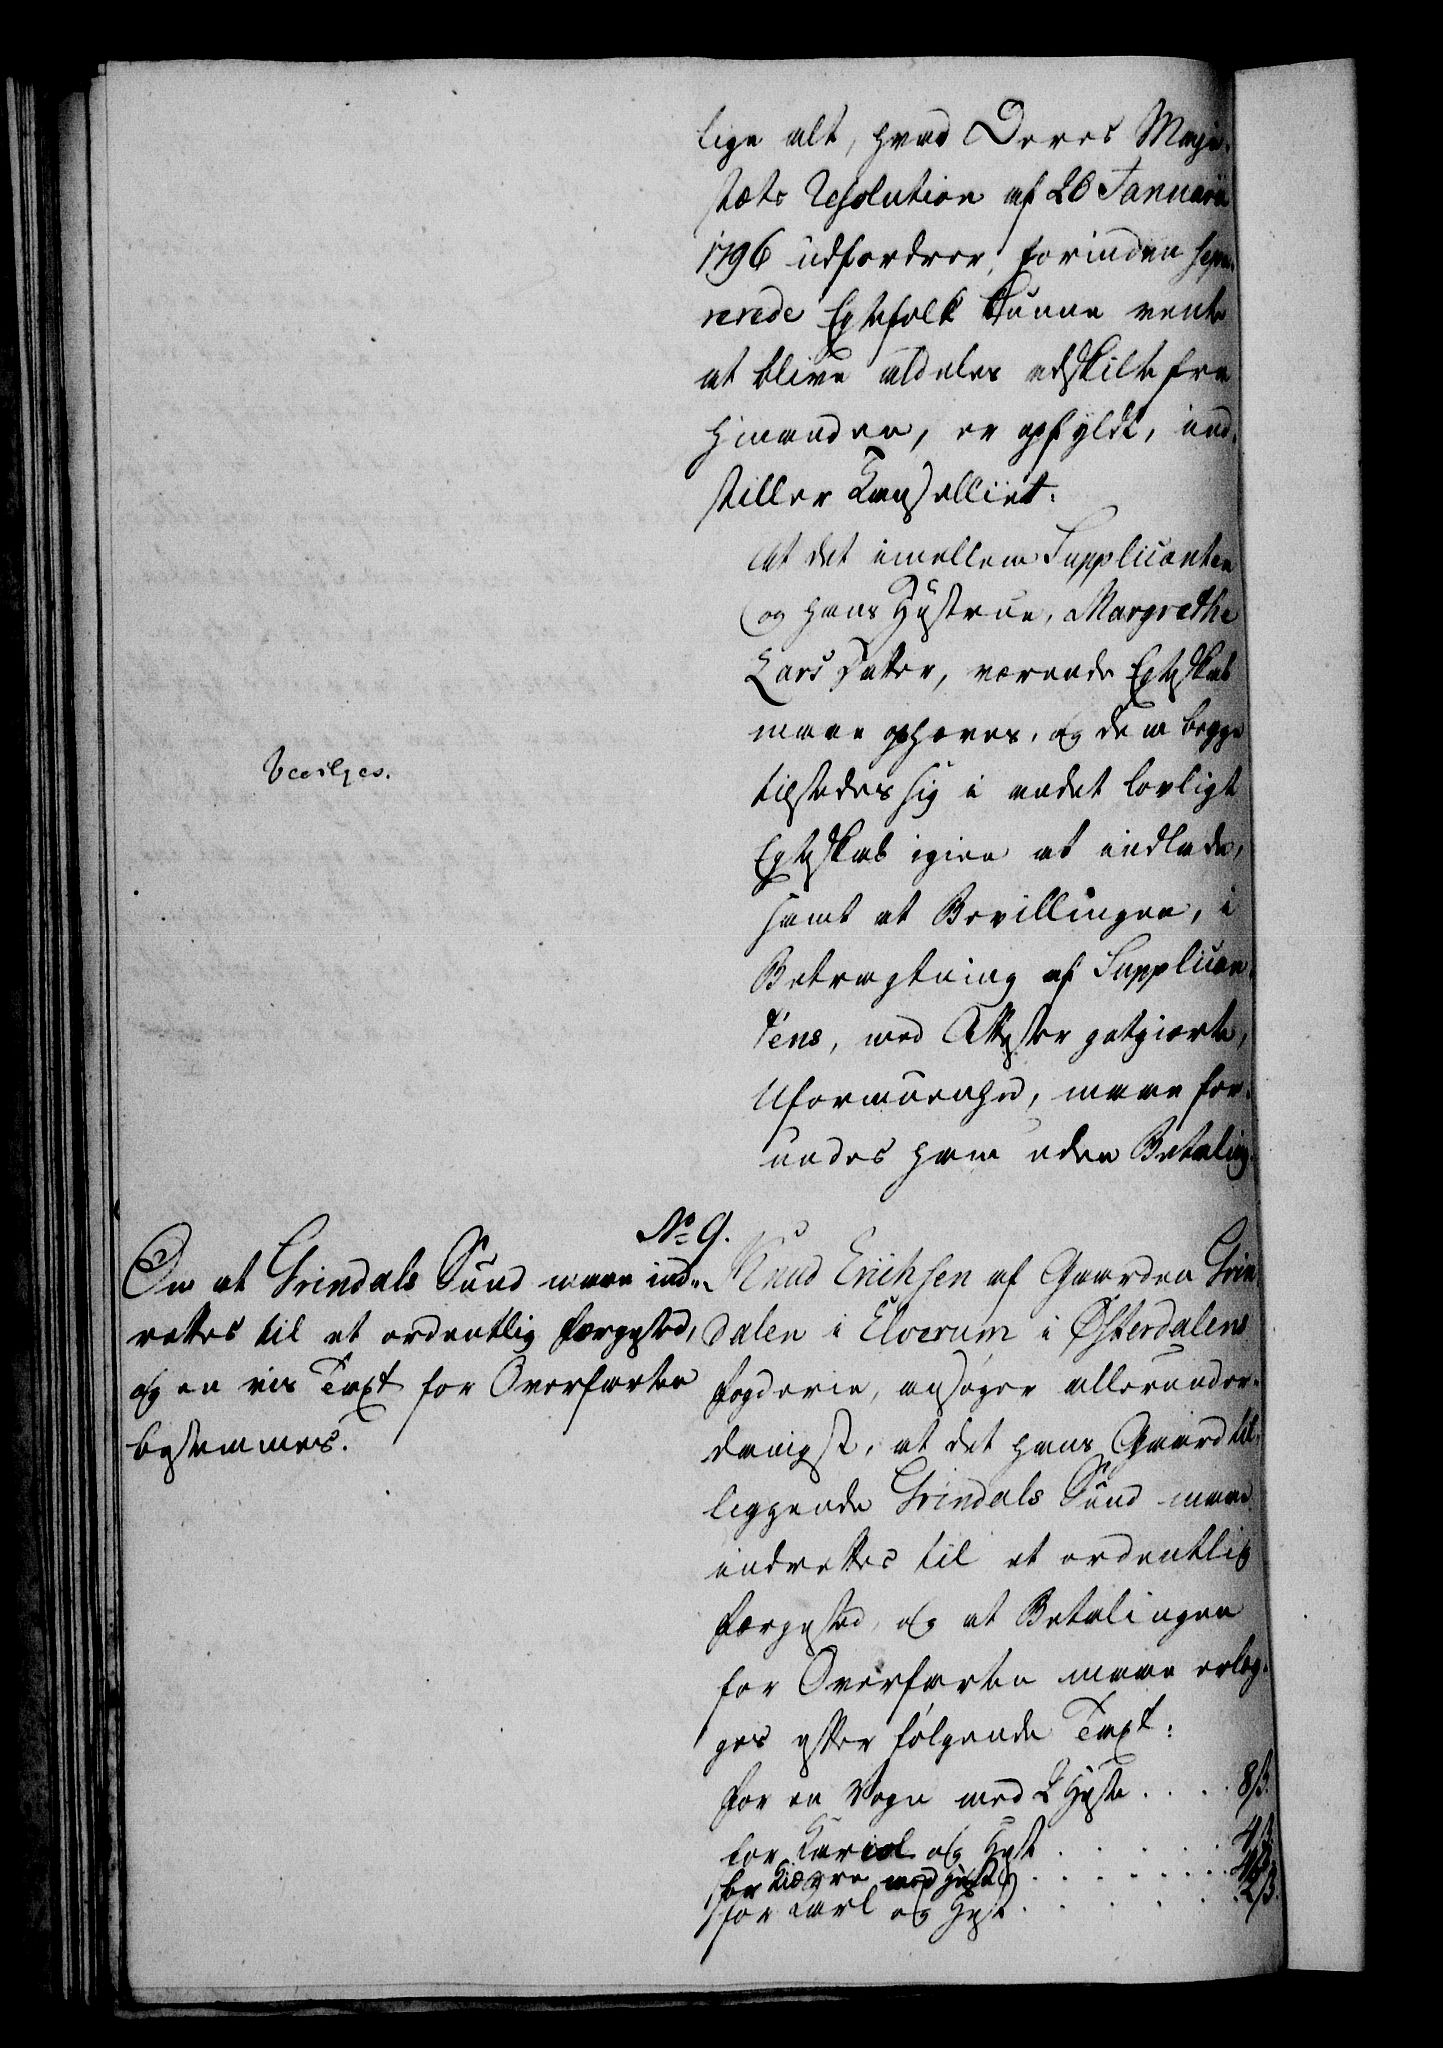 lige alt, hvad Deres Maje-
stæts Resolution af 26 Januarii
1796 udfordrer, forinden sepa-
rerede Egtefolk kunne vente
at blive aldeles adskilte fra
hinanden, er opfyldt, ind-
stiller Kancelliet:
At det imellem Supplicanten
og hans Hustrue, Margrethe
Lars Datter, værende Egteskab
maae ophæves, og dem begge
tilstedes sig i andet lovligt
Egteskab igien at indlade,
samt at Bevillingen, i
Betragtning af Supplican-
tens, med Attester godtgiorte,
Uformuenhed, maae for-
undes ham uden Betaling.
Bevilges.
No 9.
Om at Grindals Sund maae ind-
rettes til et ordentlig Færgested,
og en vis Taxt for Overfarten
bestemmes.
Knud Erichsen af Gaarden Grin
dalen i Elverum i Østerdalens
Fogderie, ansøger allerunder-
danigst, at det hans Gaard til-
liggende Grindals Sund maae
indrettes til et ordentlig
Færgested, og at Betalingen
for Overfarten maae erleg-
ges efter følgende Taxt:
for en Vogn med 2 Heste . . . . 8 ß.
for Kariol og Hest . . . . . . 4 ß.
for Kiærre med Hest . . . . . . 4 ß.
for Karl og Hest . . . . . . 2 ß.